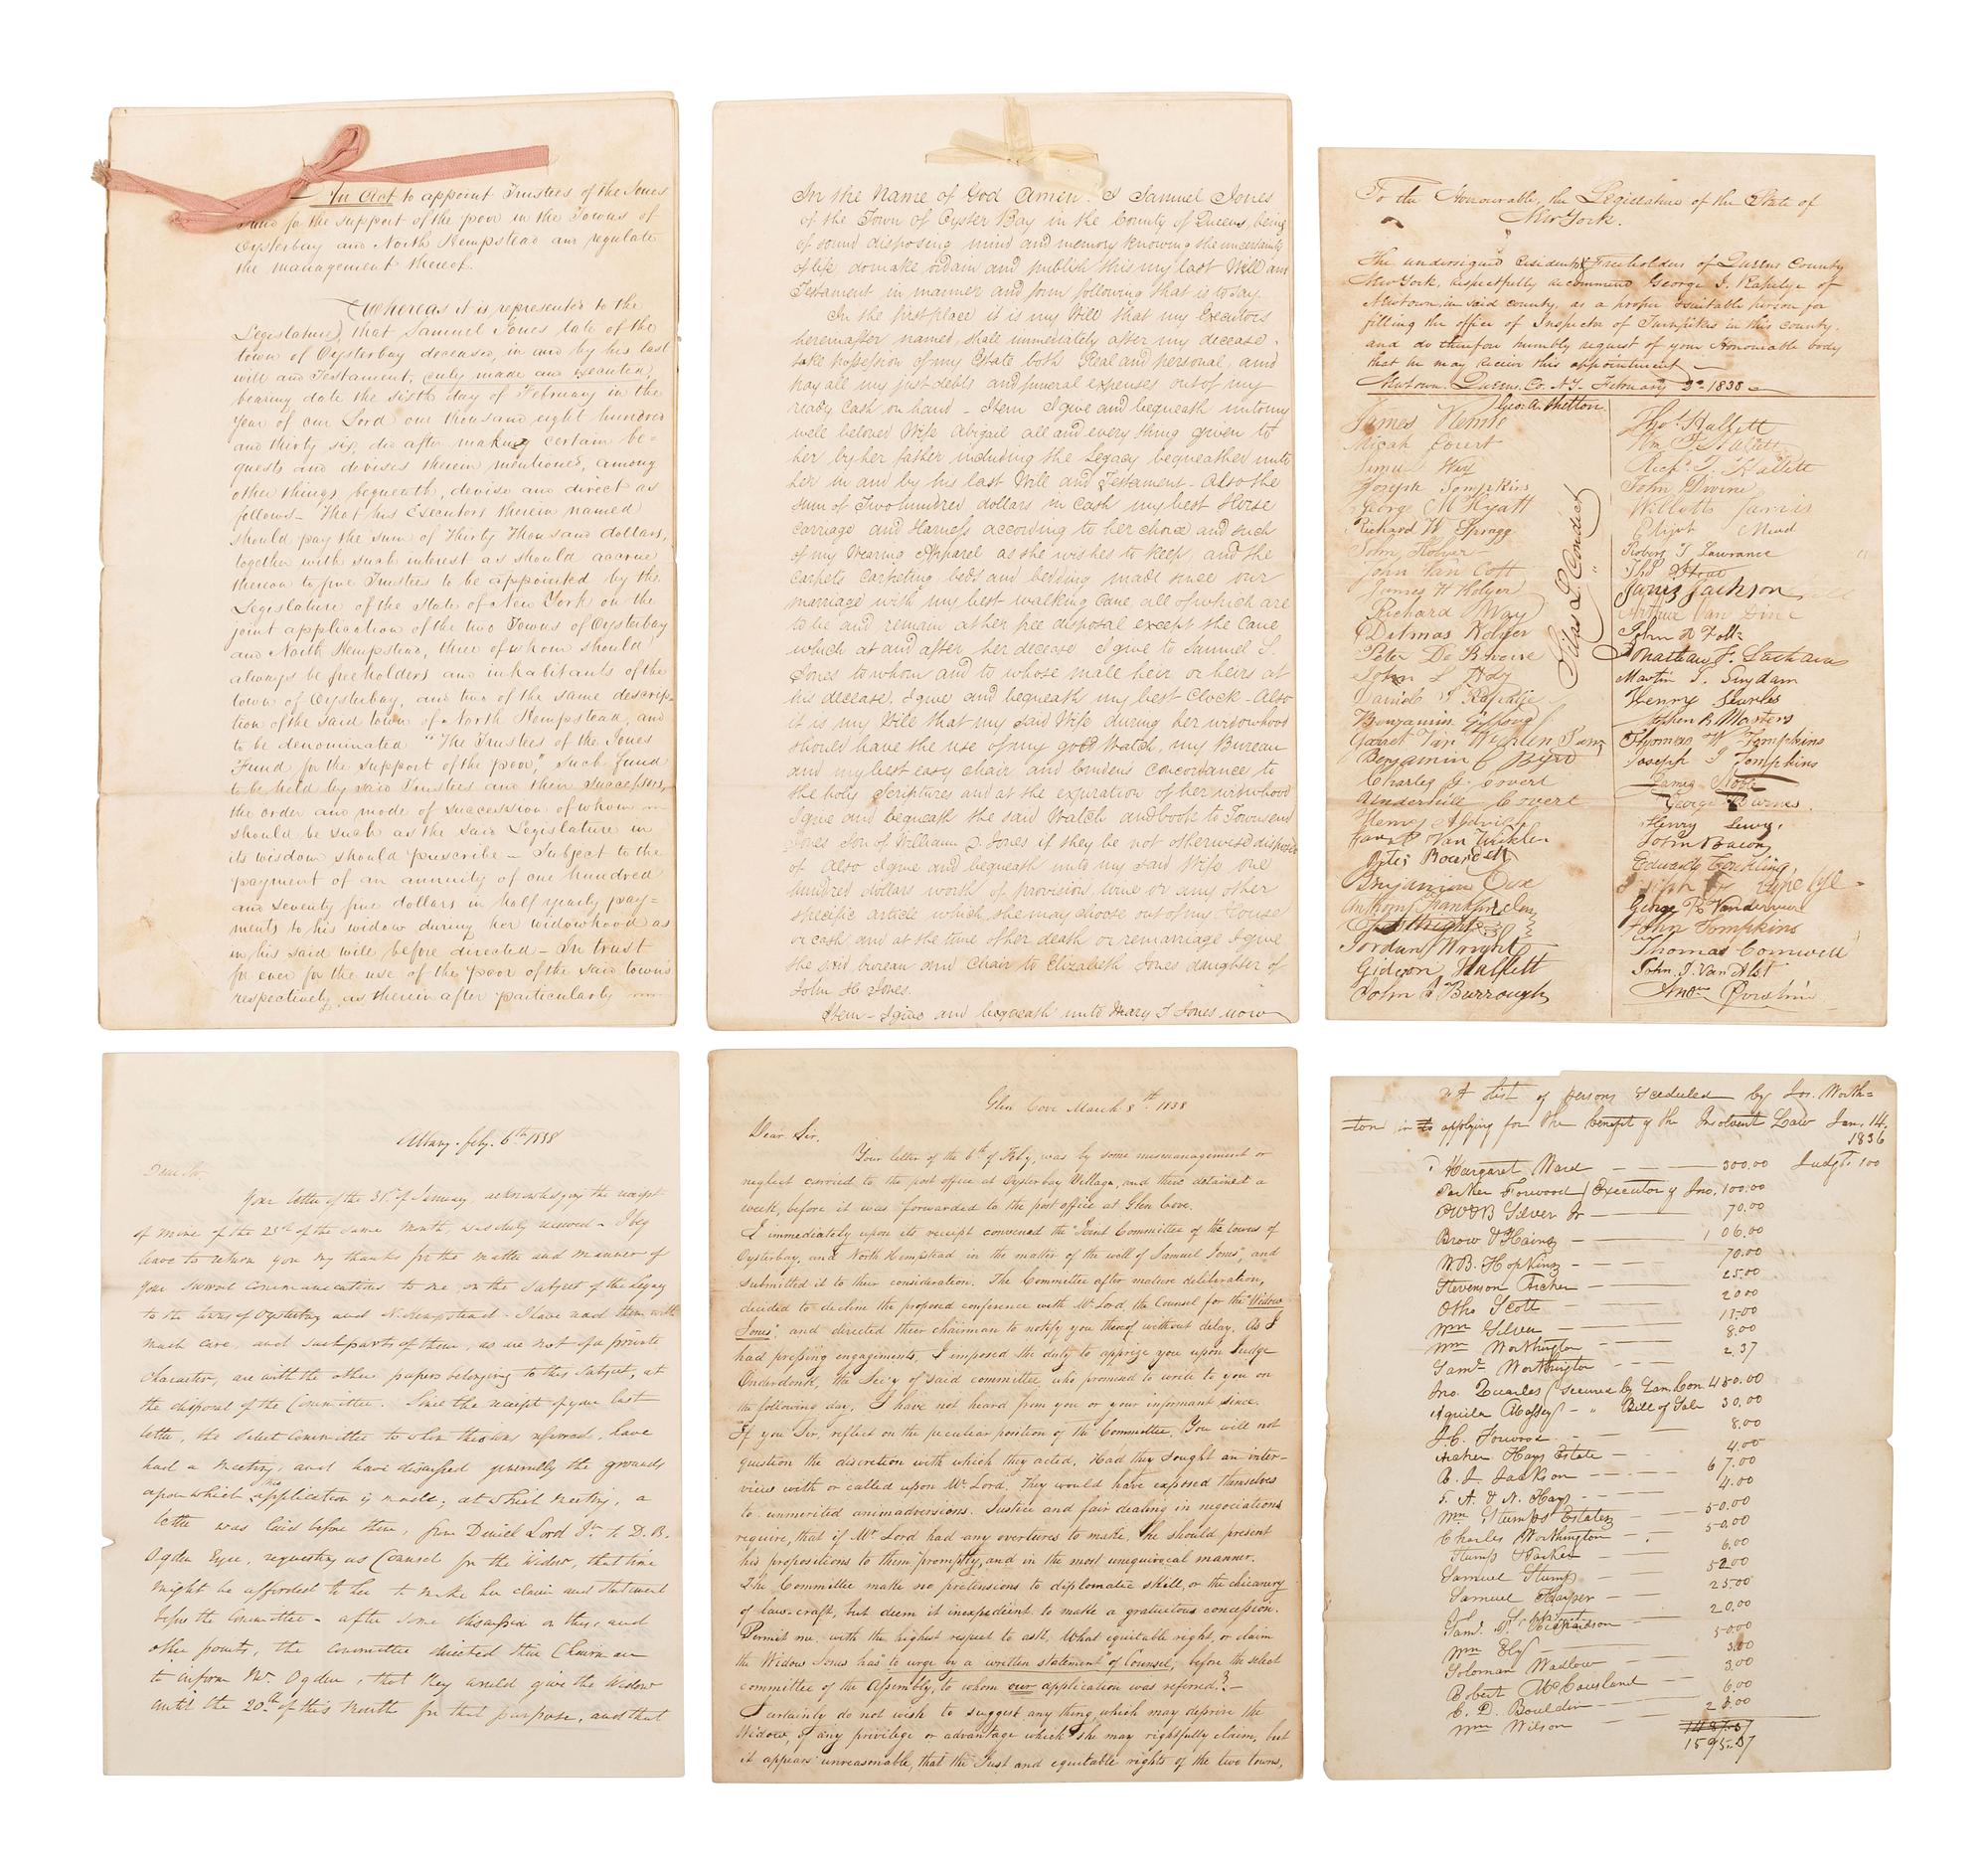 An Act to appoint Trustees of the Jones
Fund for the support of the poor in the Towns of
Oysterbay and North Hempstead and regulate
the management thereof.
Whereas it is represented to the
Legislature, that Samuel Jones late of the
town of Oysterbay deceased, in and by his last
will and Testament, duly made and executed,
bearing date the sixth day of February in the
year of our Lord one thousand eight hundred
and thirty six, did after making certain be-
quests and devises therein mentioned, among
other things bequeath, devise and direct as
follows – That his Executors therein named
should pay the sum of Thirty Thousand dollars,
together with such interest as should accrue
thereon to five Trustees to be appointed by the
Legislature of the State of New York on the
joint application of the two Towns of Oysterbay
and North Hempstead, three of whom should
always be freeholders and inhabitants of the
town of Oysterbay, and two of the same descrip-
tion of the said town of North Hempstead, and
to be denominated "The Trustees of the Jones
Fund for the support of the poor," such fund
to be held by said Trustees and their successors,
the order and mode of succession of whom
should be such as the said Legislature in
its wisdom should prescribe – Subject to the
payment of an annuity of one hundred
and seventy five dollars in half yearly pay-
ments to his widow during her widowhood as
in his said will before directed – In trust
for ever for the use of the poor of the said towns
respectively as therein after particularly
In the Name of God Amen. I Samuel Jones
of the Town of Oyster Bay in the County of Queens, being
of sound disposing mind and memory knowing the uncertainty
of life do make ordain and publish this my last Will and
Testament in manner and form following that is to say.
In the first place it is my Will that my Executors
hereinafter named, shall immediately after my decease
take possession of my Estate both Real and personal, and
pay all my just debts and funeral expenses out of my
ready Cash on hand – Item I give and bequeath unto my
well beloved Wife Abigail all and every thing given to
her by her father including the Legacy bequeathed unto
her in and by his last Will and Testament – Also the
sum of Two hundred dollars in Cash my best Horse
carriage and Harness according to her choice and such
of my Wearing Apparel as she wishes to keep, and the
carpets carpeting beds and bedding made since our
marriage with my best walking Cane all of which are
to be and remain at her free disposal except the Cane
which at and after her decease I give to Samuel S.
Jones to whom and to whose male heir or heirs at
his decease, I give and bequeath my best Clock – Also
it is my Will that my said Wife during her widowhood
should have the use of my gold Watch, my Bureau
and my best easy chair and Crudens Concordance to
the holy Scriptures and at the expiration of her widowhood
I give and bequeath the said Watch and book to Townsend
Jones Son of William S Jones if they be not otherwise disposed
of Also I give and bequeath unto my said Wife one
hundred dollars worth of provision, wine or any other
specific article which she may choose out of my House
or cash and at the time of her death or remarriage I give
the said bureau and Chair to Elizabeth Jones daughter of
John H Jones.
Item – I give and bequeath unto Mary T Jones now
To the Honourable, the Legislature of the State of
New York.
The undersigned residents & Freeholders of Queens County
New York, respectfully recommend George I. Rapelye of
Newtown, in said county, as a proper & suitable person for
filling the office of Inspector of Turnpikes in this county.
and do therefore humbly request of your Honourable body
that he may receive this appointment
Newtown. Queens. Co. N.Y. February 3d 1838
James
Micah Court
Joseph Tompkins
George M Hyatt
Richard W Spragg
John Van Cott
James H Holyer
Richard Way
Ditmas Holyer
Peter De Bevoise
John L
Daniel Rapelje
Benjamin
Garret Van
Benjamin C Byrd
Charles G. Covert
Underhill Covert
Benjamin Coe
Jordan Wright
Gideon Hallett
John Burrough
Silas L. Condict
Thos Hallett
Wm Hallett
Richd T. Hallett
John Devine
Willett Jarvis
Elijah Mead
Robert T Lawrance
James Jackson
John R Foltz
Jonathan F.
Martin T. Suydam
Henry Searles
Stephen B Masters
Thomas W Tompkins
Joseph S Tompkins
George Burns.
Henry Levy.
John Bacon
Edward Conkling
George R Vanderveer
John Tompkins
Thomas Cornwell
John. J. Van Alst
Albany. feby. 6th 1838
Dear Sir.
Your letter of the 31st of January, acknowledging the receipt
of mine of the 23rd of the same month, was duly received – I beg
leave to return you my thanks for the matter and manner of
your several communications to me, on the subject of the legacy
to the towns of Oysterbay and N. Hempstead – I have read them with
much care, and such parts of them, as are not of a private
character, are with the other papers belonging to this subject, at
the disposal of the Committee. Since the receipt of your last
letter, the select committee to whom this was referred, have
had a meeting, and have discussed generally the grounds
upon which the application is made; at which meeting, a
letter was laid before them, from Daniel Lord Jr. to D. B.
Ogden Esqre, requesting as Counsel for the Widow, that time
might be afforded to her to make her claim and statement
before the Committee – after some discussion on this, and
other points, the committee directed their Chairman
to inform Mr. Ogden, that they would give the Widow
until the 20th of this month for that purpose, and that
Glen Cove March 8th 1838
Dear Sir.
Your letter of the 6th of Feby, was by some mismanagement or
neglect carried to the post office at Oysterbay Village, and there detained a
week, before it was forwarded to the post office at Glen Cove.
I immediately upon its receipt convened the "Joint Committee of the towns of
Oysterbay, and North Hempstead in the matter of the will of Samuel Jones", and
submitted it to their consideration. The Committee after mature deliberation,
decided to decline the proposed conference with Mr Lord, the Counsel for the "Widow
Jones", and directed their chairman to notify you thereof without delay. As I
had pressing engagements, I imposed the duty to apprize you upon Judge
Onderdonk, the Sec'y of said committee who promised to write to you on
the following day. I have not heard from you or your informant since.
If you Sir, reflect on the peculiar position of the Committee, You will not
question the discretion with which they acted. Had they sought an inter-
view with or called upon Mr Lord, They would have exposed themselves
to unmerited animadversions. Justice and fair dealing in negociations
require, that if Mr Lord had any overtures to make, He should present
his propositions to them promptly, and in the most unequivocal manner.
The Committee make no pretensions to diplomatic skill, or the chicanery
of law-craft, but deem it inexpedient to make a gratuitous concession.
Permit me, with the highest respect to ask, What equitable right, or claim
the Widow Jones has "to urge by a written statement" of Counsel, before the select
committee of the Assembly, to whom our application was referred? –
I certainly do not wish to suggest any thing, which may deprive the
Widow, of any privilege or advantage which she may rightfully claim, but
it appears unreasonable, that the Just and equitable rights of the two towns,
A list of persons sceduled by Jos. Worth=
=ton in applying for the benefit of the Insolvent Law Jan. 14.
1836
Margaret Ward 300.00 Judgt. 100
Parker Forwood Executor of Jno. 100.00
W & B Silver Jr 70.00
Brow & Hainz 106.00
W. B. Hopkins 70.00
Stevenson Archer 25.00
Otho Scott 20.00
Wm Silver
Wm Worthington 8.00
Saml Worthington 2.37
Jno. Quarles secured by 450.00
Aquila Massey " Bill of Sale 30.00
J. C. Forwood 8.00
Archer Hays Estate 4.00
R. I. Jackson 67.00
T. A. & N. Hays 4.00
Wm Stumps Estate 50.00
Charles Worthington 50.00
Stump & Parker 6.00
Samuel Stump 52.00
Samuel Harper 25.00
Saml. Richardson 20.00
Wm Ely 50.00
Soloman Wadlow 3.00
Robert McCausland 3.00
E. D. Bouldin 6.00
Wm Wilson